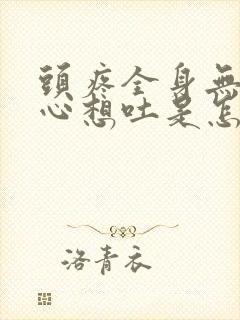 頭疼全身無
心想吐是怎
洛青衣